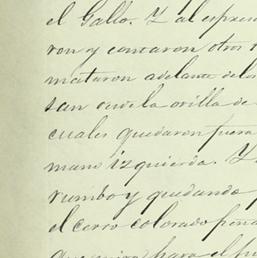 el Gallo. Y al espre
ron y contaron otros
mataron adelante de la
san  la orilla de
cuales quedaron fuera
mano izquierda. Y
rumbo y quedando
el cerro colorado
para el